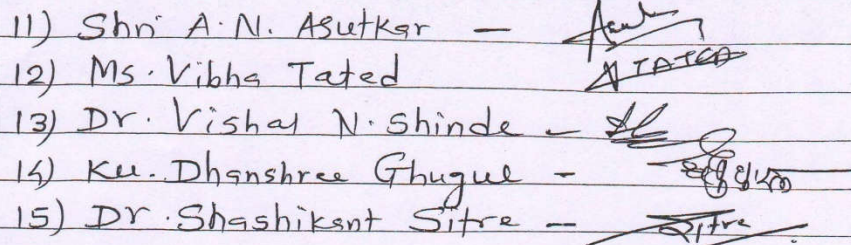 11) Shri A. N. Asutkar -
12) Ms. Vibha Tated ATATED
13) Dr. Vishal N. Shinde -
14) Ku. Dhanshree Ghugul -
15) Dr. Shashikant Sitre - Sitre